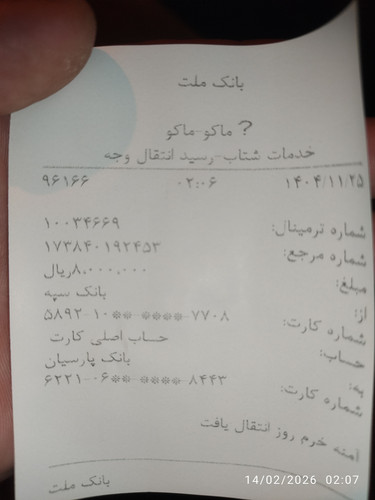 بانک ملت
? ماکو-ماکو
خدمات شتاب-رسید انتقال وجه
۱۴۰۴/۱۱/۲۵ ۰۲:۰۶ ۹۶۱۶۶
شماره ترمینال: ۱۰۰۳۴۶۶۹
شماره مرجع: ۱۷۳۸۴۰۱۹۲۴۵۳
مبلغ: ۸,۰۰۰,۰۰۰ریال
از: بانک سپه
شماره کارت: ۵۸۹۲-۱۰**-****-۷۷۰۸
حساب: حساب اصلی کارت
به: بانک پارسیان
شماره کارت: ۶۲۲۱-۰۶**-****-۸۴۴۳
آمنه خرم روز انتقال یافت
بانک ملت
14/02/2026 02:07